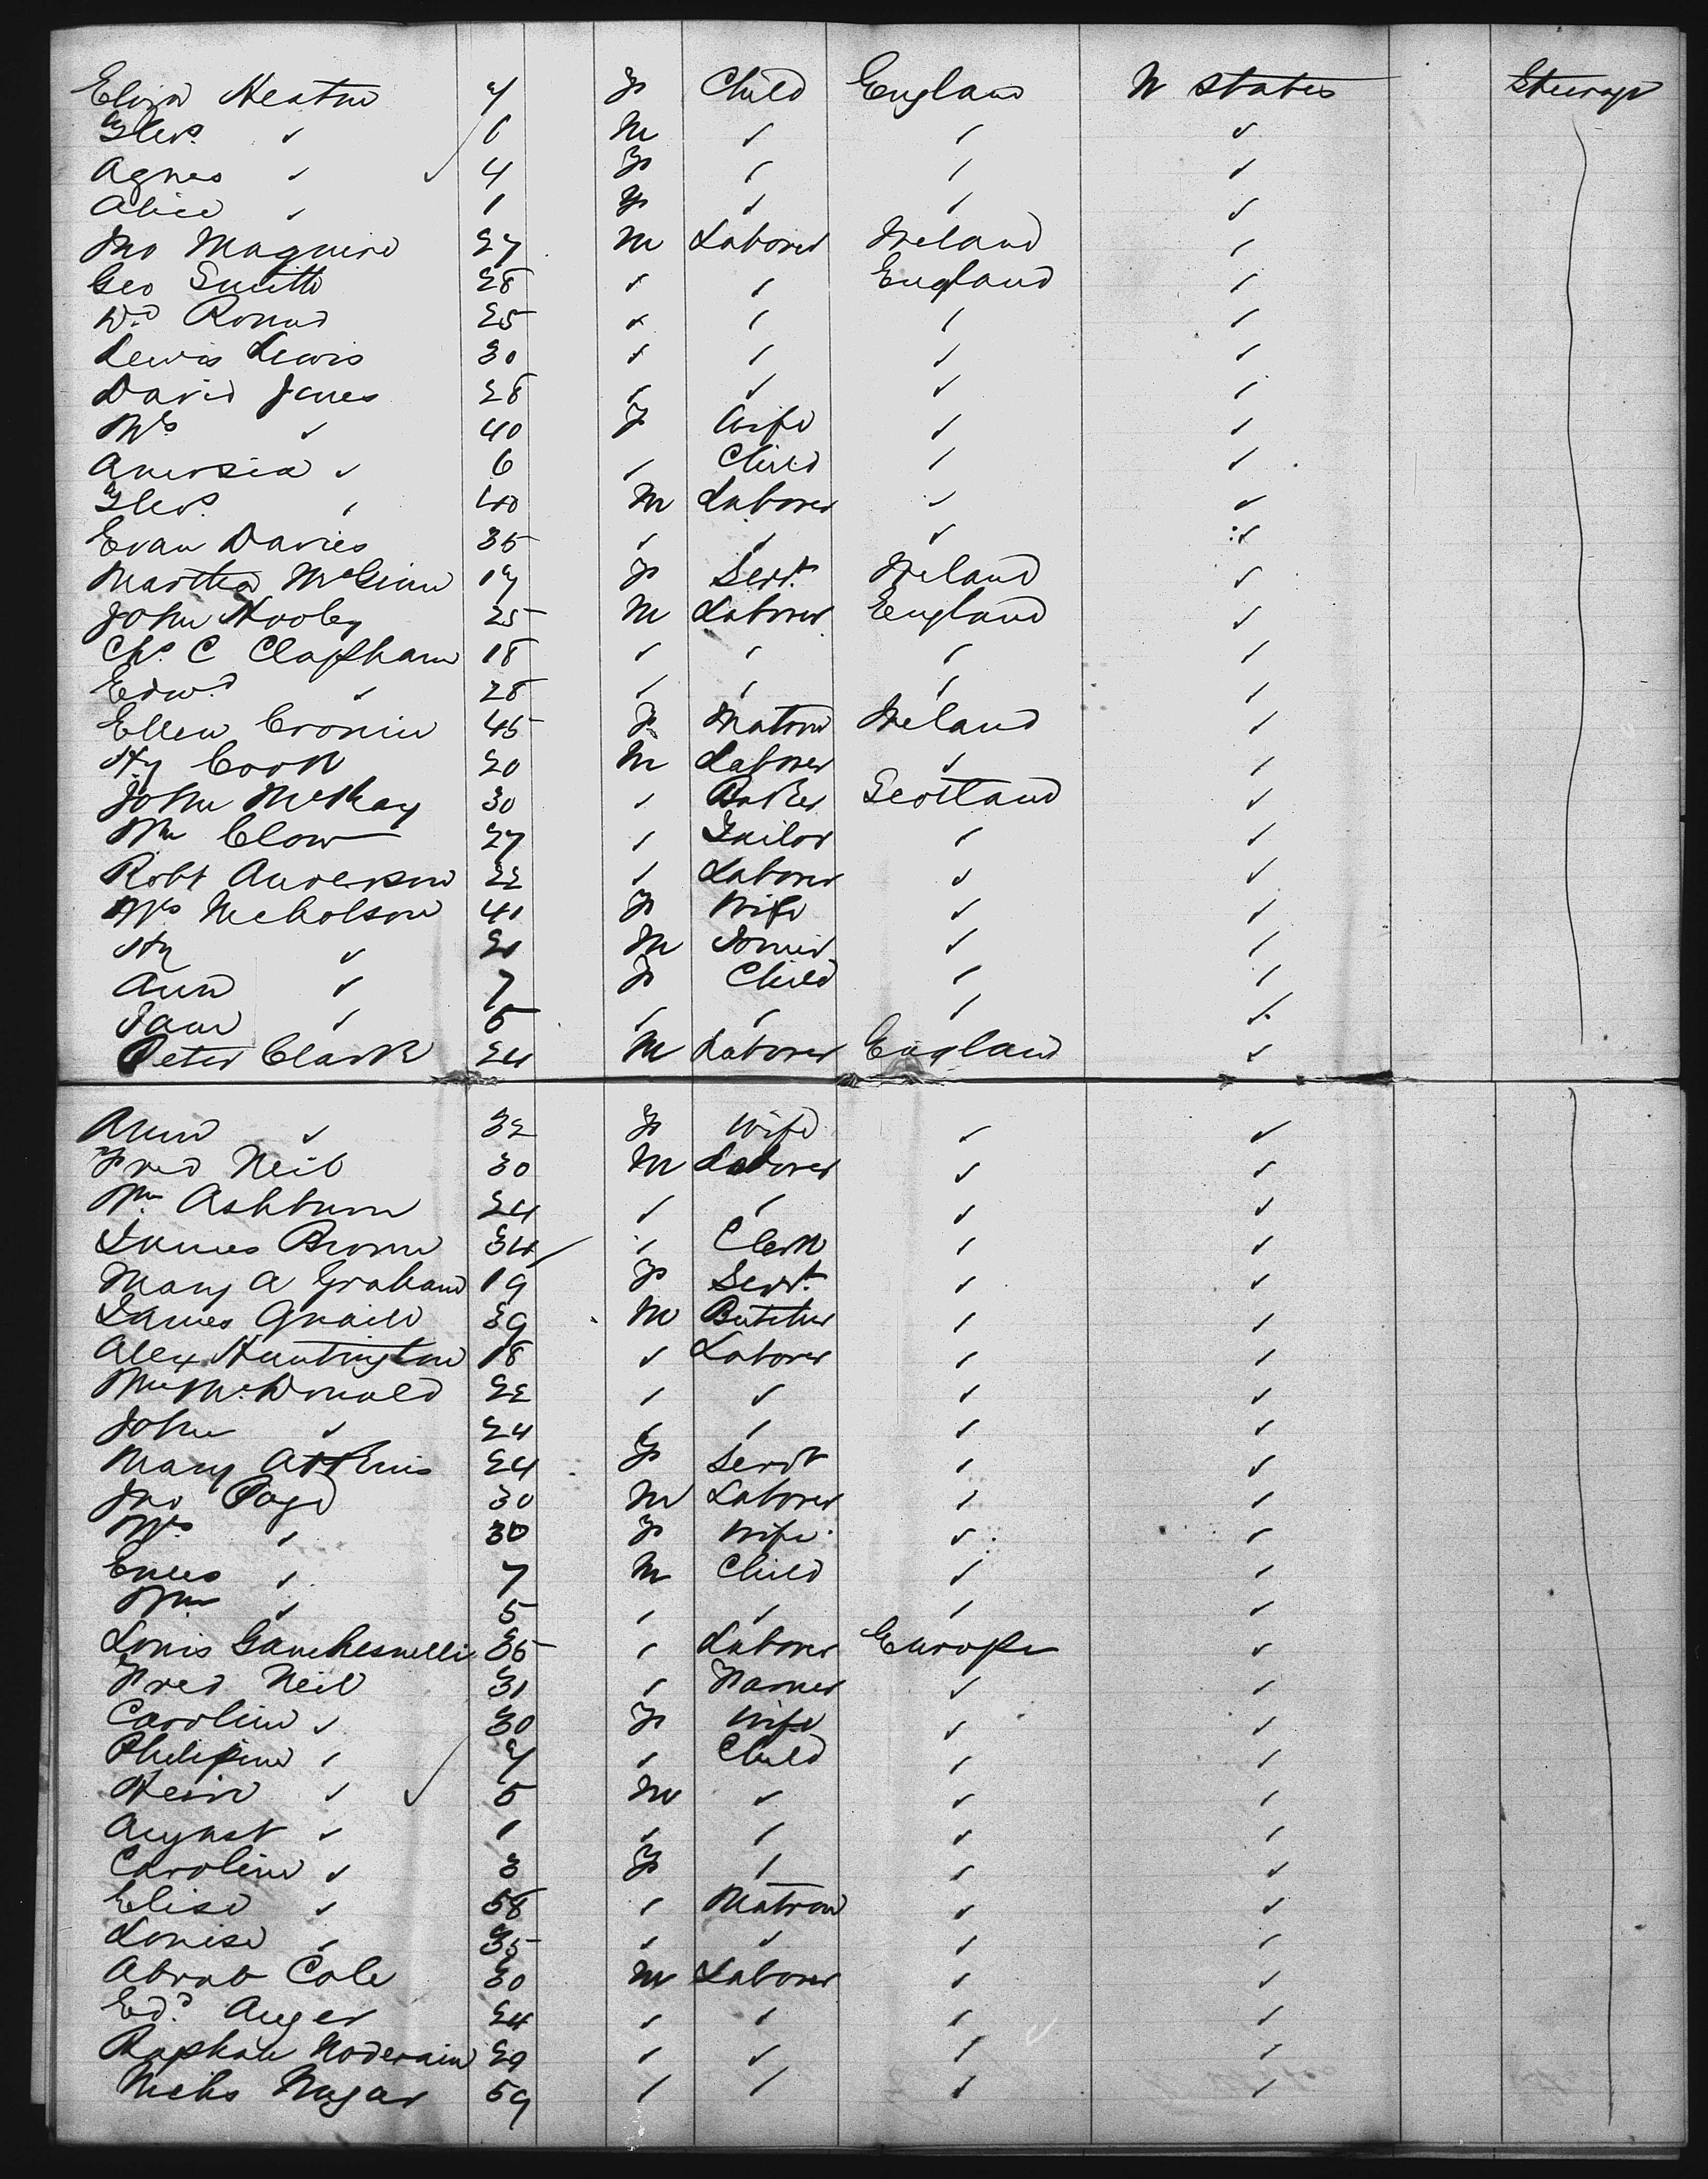 Eliza Heaton 9 F Child England U States Steerage
Thos. ✓ 6 M ✓ ✓ ✓
Agnes ✓ 4 F ✓ ✓ ✓
Alice ✓ 1 F ✓ ✓ ✓
Jno Maguire 27 M Laborer Ireland ✓
Geo Smith 28 ✓ ✓ England ✓
25 ✓ ✓ ✓ ✓
Lewis Lewis 30 ✓ ✓ ✓ ✓
David Jones 28 ✓ ✓ ✓ ✓
Mrs ✓ 40 F Wife ✓ ✓
✓ 6 ✓ Child ✓ ✓
Thos. ✓ 40 M Laborer ✓ ✓
Evan Davies 35 ✓ ✓ ✓ ✓
Martha McGinn 19 F Servt. Ireland ✓
John Hooley 25 M Laborer England ✓
Chs. C Clapham 18 ✓ ✓ ✓ ✓
Edwd ✓ 28 ✓ ✓ ✓ ✓
Ellen Cronin 45 F Matron Ireland ✓
Hy Cook 20 M Laborer ✓ ✓
John McKay 30 ✓ Baker Scotland ✓
Wm Clow 27 ✓ Tailor ✓ ✓
Robt Anderson 22 ✓ Laborer ✓ ✓
Mrs Nicholson 40 F Wife ✓ ✓
Hy ✓ M ✓ ✓
Ann ✓ 7 F Child ✓ ✓
Jane ✓ 5 ✓ ✓ ✓ ✓
Peter Clark 24 M Laborer England ✓
Ann ✓ 32 F Wife ✓ ✓
Fred Neil 30 M Laborer ✓ ✓
Wm. Ashburn 24 ✓ ✓ ✓ ✓
James Brown 34 ✓ Clerk ✓ ✓
Mary A Graham 19 F Servt. ✓ ✓
James Quaile 39 M Butcher ✓ ✓
Alex Huntington 18 ✓ Laborer ✓ ✓
Wm McDonald 22 ✓ ✓ ✓ ✓
John ✓ 24 ✓ ✓ ✓ ✓
Mary Atkins 24 F Servt ✓ ✓
Jno Page 30 M Laborer ✓ ✓
Mrs ✓ 30 F Wife ✓ ✓
✓ 7 M Child ✓ ✓
Wm ✓ 5 ✓ ✓ ✓ ✓
Louis 35 ✓ Laborer Europe ✓
Fred Neil 31 ✓ Farmer ✓ ✓
Caroline ✓ 30 F Wife ✓ ✓
Philipine ✓ 9 ✓ Child ✓ ✓
Hein ✓ 5 M ✓ ✓ ✓
August ✓ 1 ✓ ✓ ✓ ✓
Caroline ✓ 3 F ✓ ✓ ✓
Elise ✓ 58 ✓ Matron ✓ ✓
Louise ✓ 35 ✓ ✓ ✓ ✓
Cole 30 M Laborer ✓ ✓
Edd. Auger 24 ✓ ✓ ✓ ✓
29 ✓ ✓ ✓ ✓
59 ✓ ✓ ✓ ✓